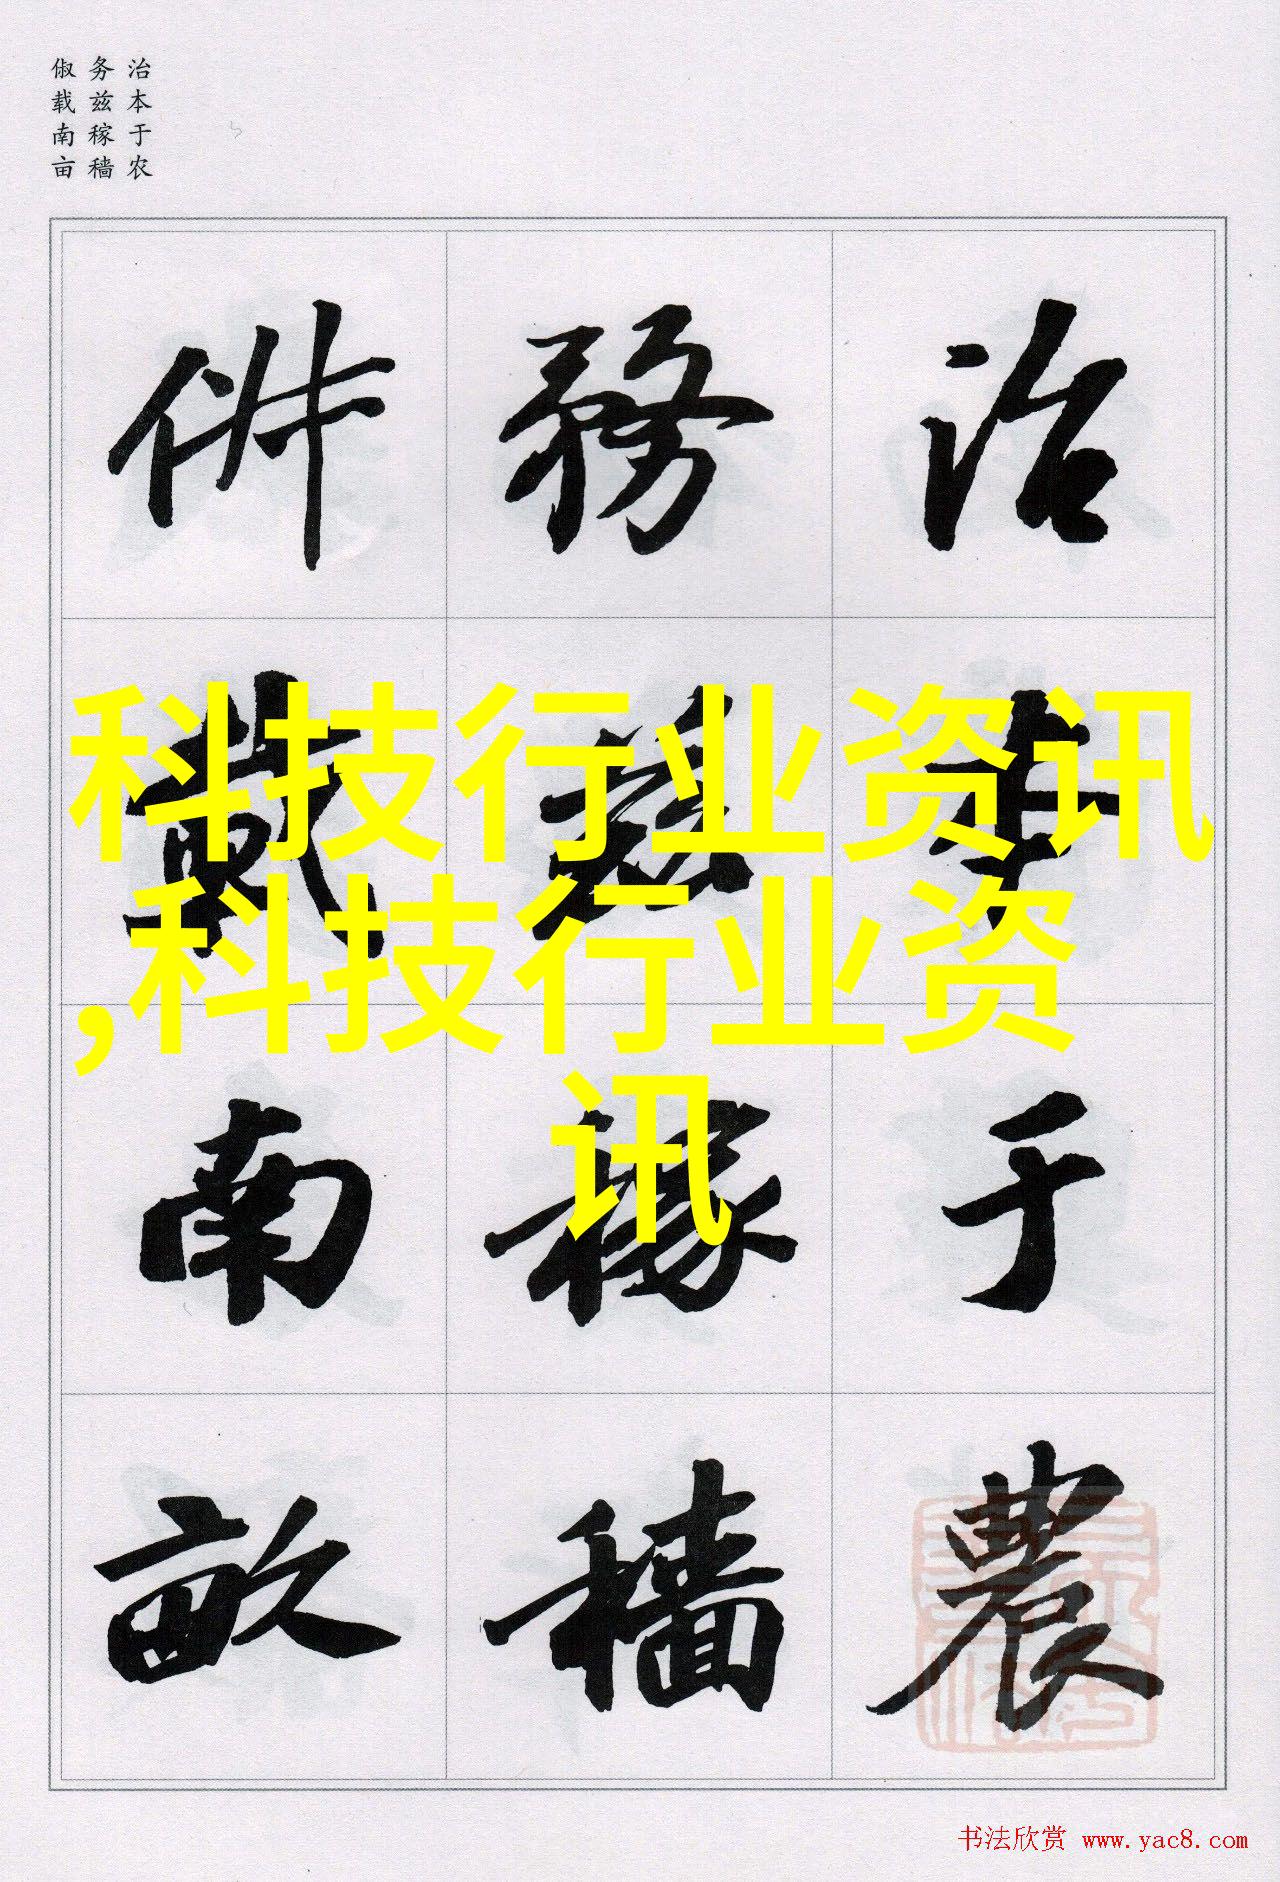 治本于农
务兹稼穑
俶载南亩
治本于農
務茲稼穡
俶載南畝
科技行业资讯
,科技行业资
讯
书法欣赏 www.yac8.com